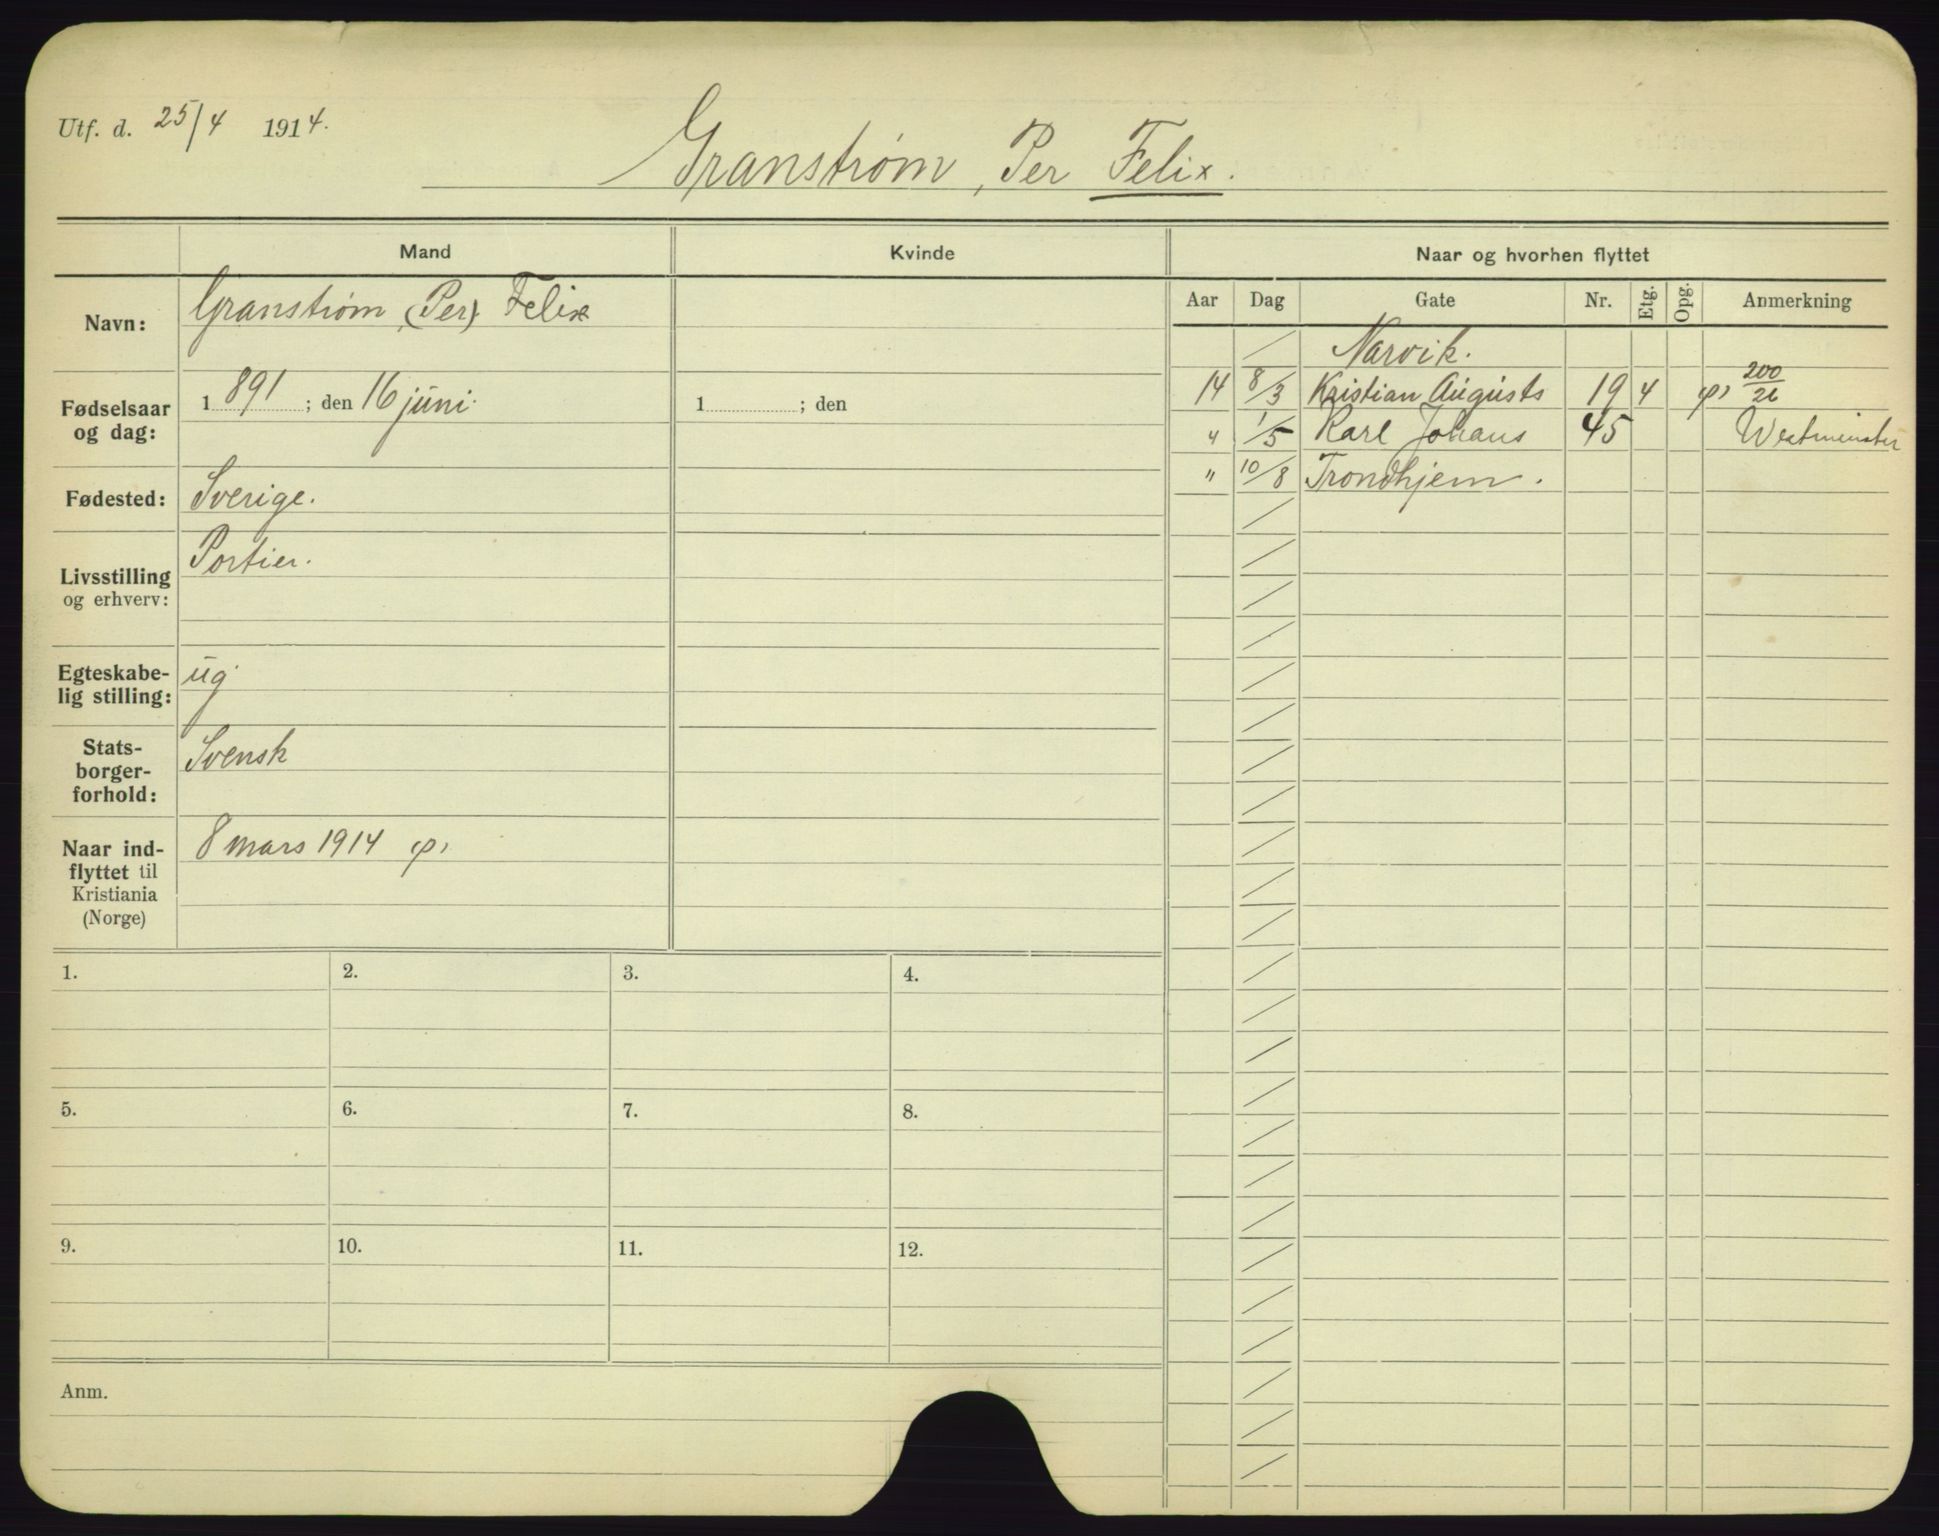 Utf. d. 25/4 1914.
Granstrøm, Per Felix.
Mand
Kvinde
Naar og hvorhen flyttet
Navn:
Granstrøm, (Per) Felix
Fødselsaar og dag:
1891; den 16 juni.
1 ; den
Fødested:
Sverige.
Livsstilling og erhverv:
Portier.
Egteskabe-
lig stilling:
ug.
Stats-
borger-
forhold:
Svensk
Naar ind-
flyttet til
Kristiania
(Norge)
8 mars 1914
Aar Dag Gate Nr. Etg. Opg. Anmerkning
/ Narvik.
14 8/3 Kristian Augusts 19 4 200/26
" 1/5 Karl Johans 45 Westminster
" 10/8 Trondhjem.
1. 2. 3. 4.
5. 6. 7. 8.
9. 10. 11. 12.
Anm.